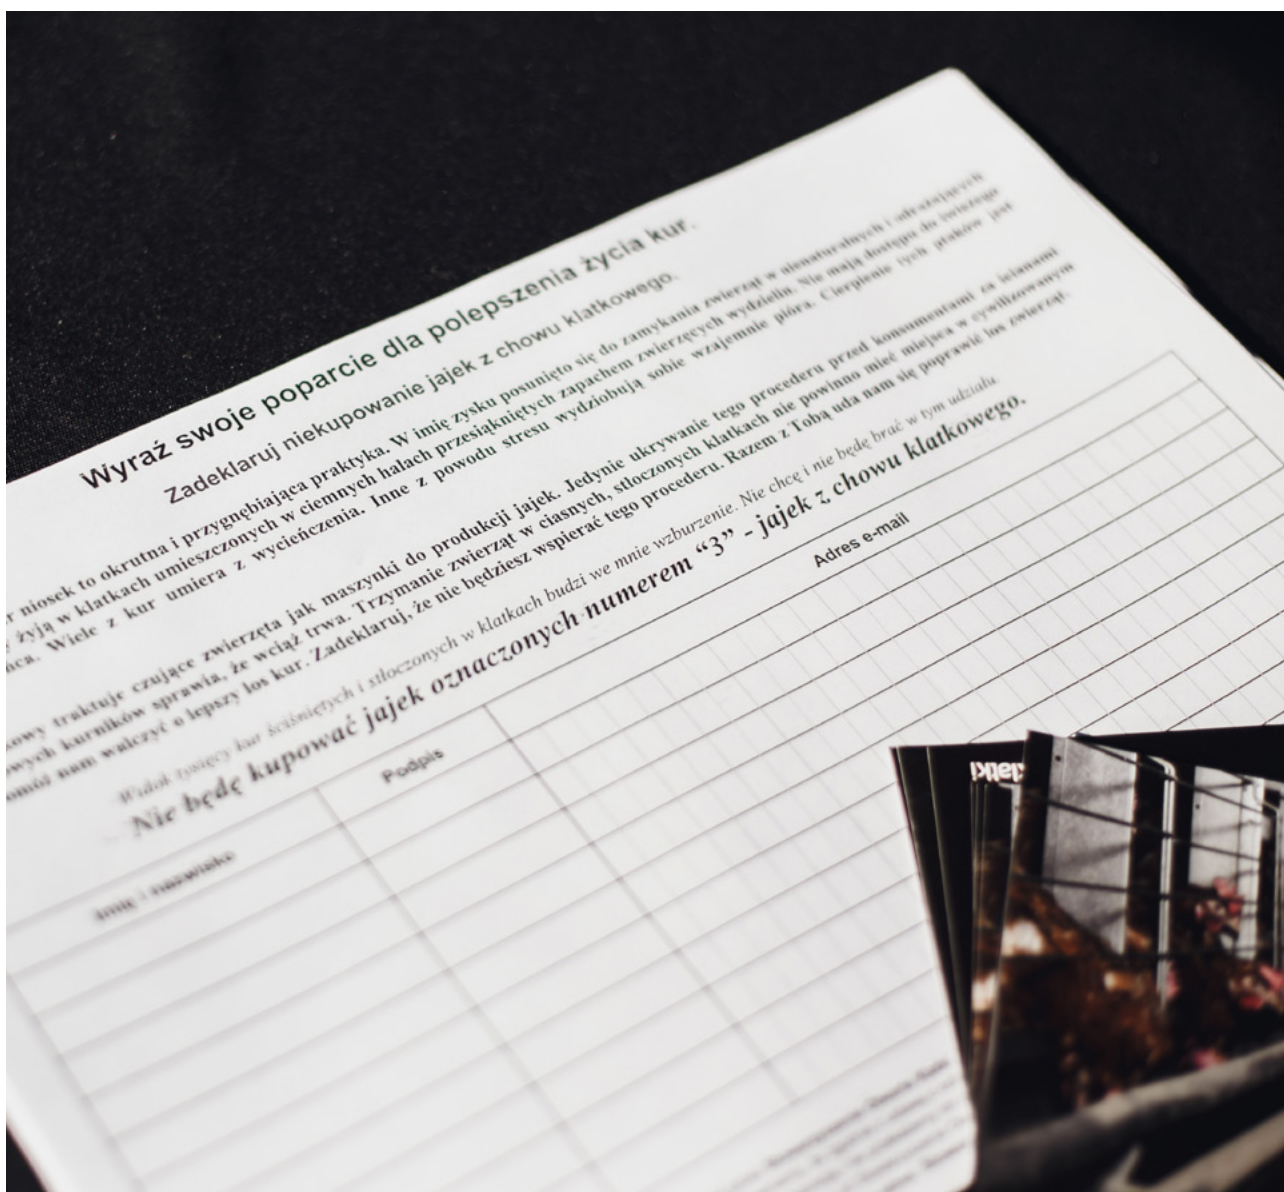 Wyraź swoje poparcie dla polepszenia życia kur.
Zadeklaruj niekupowanie jajek z chowu klatkowego.
niosek to okrutna i przygnębiająca praktyka. W imię zysku posunięto się do zamykania zwierząt w nienaturalnych i odrażających
żyją w klatkach umieszczonych w ciemnych halach przesiąkniętych zapachem zwierzęcych wydzielin. Nie mają dostępu do świeżego
Wiele z kur umiera z wycieńczenia. Inne z powodu stresu wydziobują sobie wzajemnie pióra. Cierpienie tych ptaków jest
traktuje czujące zwierzęta jak maszynki do produkcji jajek. Jedynie ukrywanie tego procederu przed konsumentami za ścianami
kurników sprawia, że wciąż trwa. Trzymanie zwierząt w ciasnych, stłoczonych klatkach nie powinno mieć miejsca w cywilizowanym
nam walczyć o lepszy los kur. Zadeklaruj, że nie będziesz wspierać tego procederu. Razem z Tobą uda nam się poprawić los zwierząt.
Widok tysięcy kur ściśniętych i stłoczonych w klatkach budzi we mnie wzburzenie. Nie chcę i nie będę brać w tym udziału.
Nie będę kupować jajek oznaczonych numerem “3” - jajek z chowu klatkowego.
Imię i nazwisko Podpis Adres e-mail
klatki